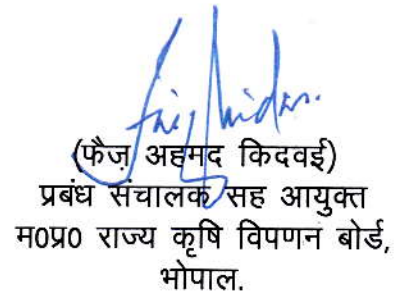 (फैज़ अहमद किदवई)
प्रबंध संचालक सह आयुक्त
म0प्र0 राज्य कृषि विपणन बोर्ड,
भोपाल.